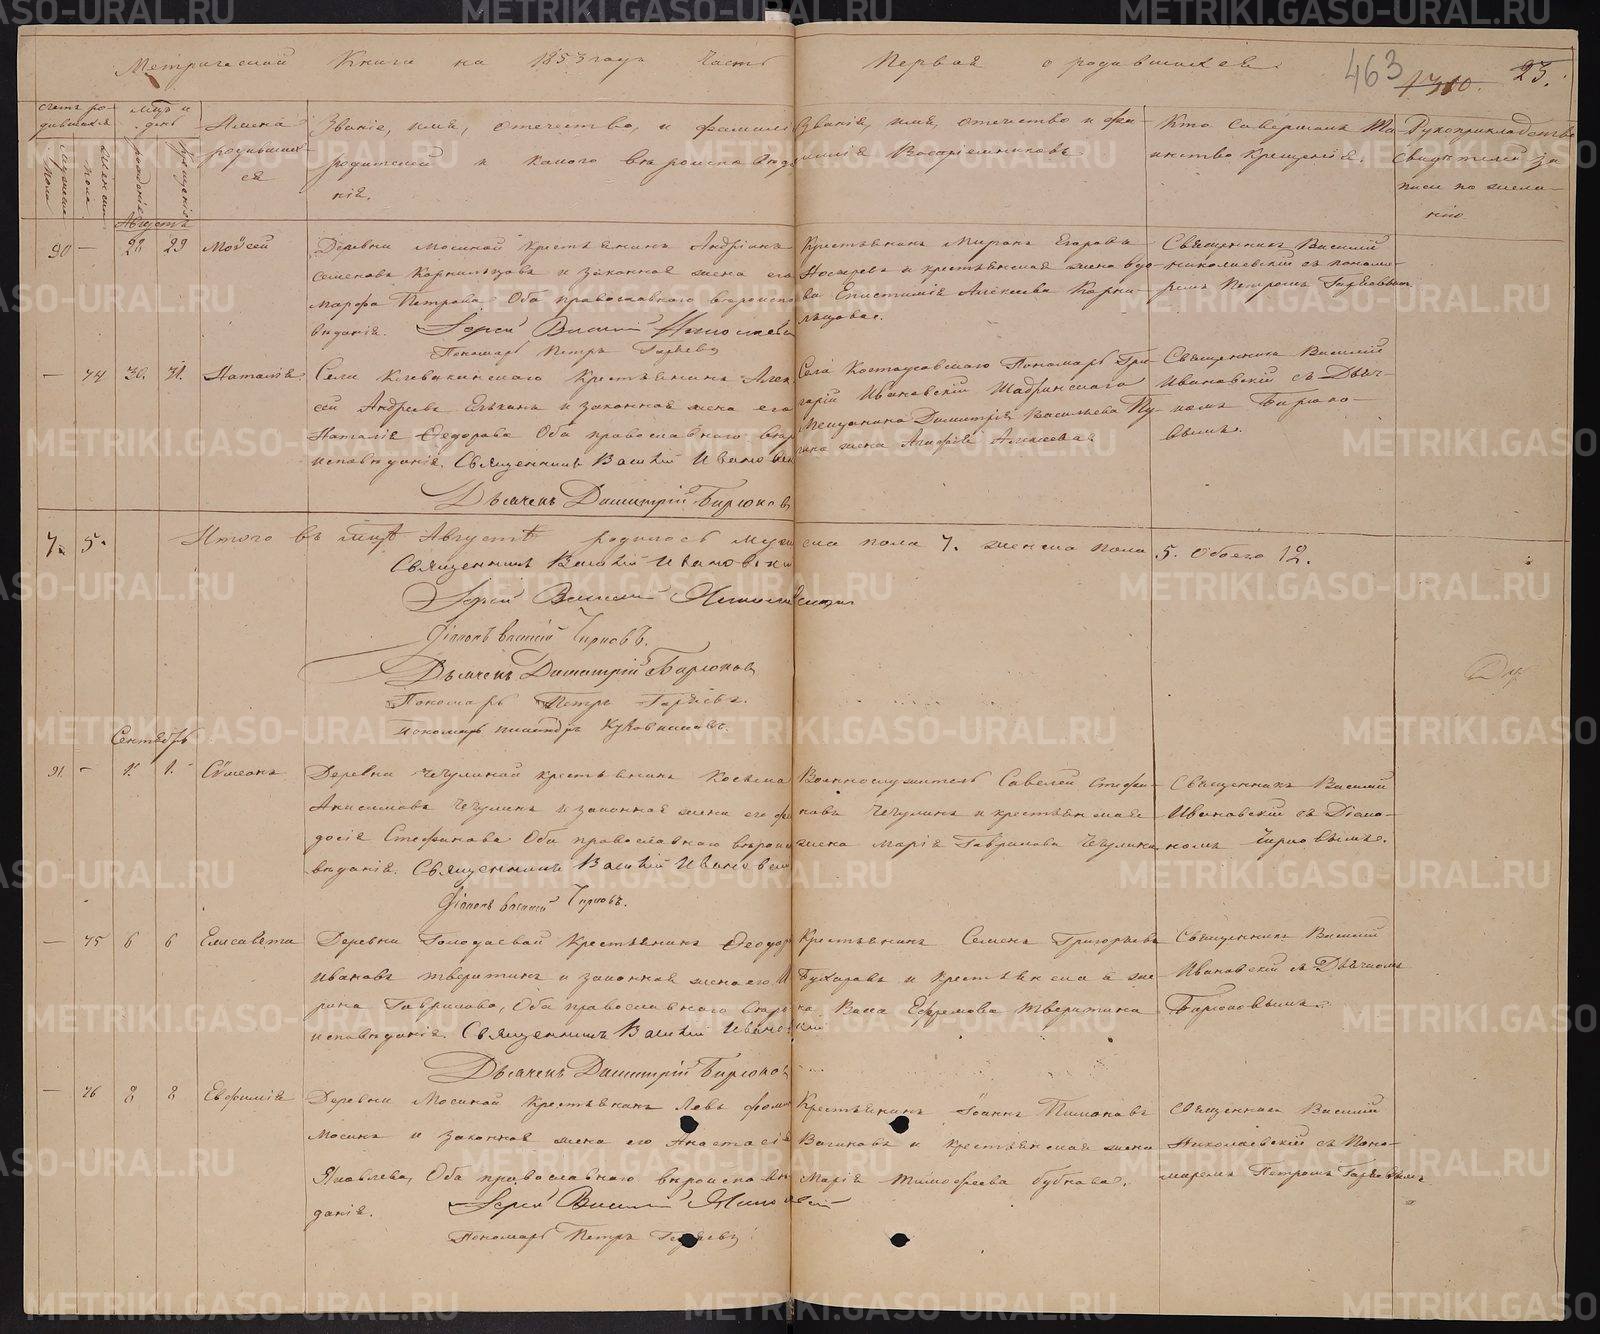 Метрической Книги на 1853 годъ Часть Первая о родившихся.
463
1310. 23.
Счетъ родившихся
Мужеска пола
Женска пола
Мѣц и день
рожденія
крещенія
Имена родившихся
Званіе, имя, отечество, и фамилія
родителей и какого вѣроисповѣда
нія.
Званіе, имя, отечество и фа-
милія Воспріемниковъ
Кто Совершалъ Та-
инство Крещенія.
Рукоприкладство
Свидѣтелей за
писи по жела-
нію
Августъ
90 — 28 29 Моѵсей
Деревни Мосиной крестьянинъ Андріанъ
Семеновъ Корнильцовъ и законная жена его
Марфа Петрова Оба православнаго вѣроиспо
вѣданія. Іерей Василій Николаевскій
Пономарь Петръ
Крестьянинъ Миронъ Егоровъ
Носыревъ и крестьянская жена вдо-
ва Епистимія Алексеева Корни-
льцова.
Священникъ Василій
Николаевскій съ понома-
ремъ Петромъ
— 74 30. 31. Наталія.
Села Клевакинскаго Крестьянинъ Алек
сей Андреевъ и законная жена его
Наталія Ѳедорова Оба православнаго вѣро
исповѣданія. Священникъ Василій Ивановскій
Дьячекъ Димитрій Бирюковъ
Села Костоусовскаго Пономарь Гри-
горій Ивановскій Шадринскаго
Мещанина Димитрія Васильева Пу-
гина жена Агафія Алексеева
Священникъ Василій
Ивановскій съ Дьяч-
комъ Бирюко-
вымъ.
7. 5. Итого въ мцѣ Августѣ родилось муже
ска пола 7. женска пола 5. Обоего 12.
Священникъ Василій Ивановскій
Іерей Василій Николаевскій
Діаконъ Василій Чирковъ.
Дьячекъ Димитрій Бирюковъ
Пономарь Петръ
Пономарь
Сентябрь
91. — 1. 1. Сѵмеонъ
Деревни Чечулиной крестьянинъ Косьма
Анисимовъ Чечулинъ и законная жена его Ѳе
досія Стефанова Оба православнаго вѣроиспо
вѣданія. Священникъ Василій Ивановскій
Діаконъ Василій Чирковъ.
Военнослужитель Савелей Стефа-
новъ Чечулинъ и крестьянская
жена Марія Гаврилова Чечулина
Священникъ Василій
Ивановскій съ Діако-
номъ Чирковымъ.
— 75 6 6 Елисавета
Деревни Голодаевой Крестьянинъ Ѳеодоръ
Ивановъ Тверитинъ и законная жена его И
рина Гаврилова, Оба православнаго вѣро
исповѣданія. Священникъ Василій Иванов
скій
Дьячекъ Димитрій Бирюковъ
Крестьянинъ Семенъ Григорьевъ
Бухаровъ и крестьянска я же-
на Васса Ефремова Тверитина
Священникъ Василій
Ивановскій съ Дьячкомъ
Бирюковымъ.
— 76 8 8 Евфимія
Деревни Мосиной Крестьянинъ Левъ Фомин
Мосинъ и законная жена его Анастасія
Яковлева, Оба православнаго вѣроисповѣ
данія. Іерей Василій Николаевскій
Пономарь Петръ
Крестьянинъ Іоаннъ Пимоновъ
Вагиновъ и крестьянская жена
Марія Тимофеева Бубнова.
Священникъ Василій
Николаевскій съ Поно-
маремъ Петромъ
METRIKI.GASO-URAL.RU